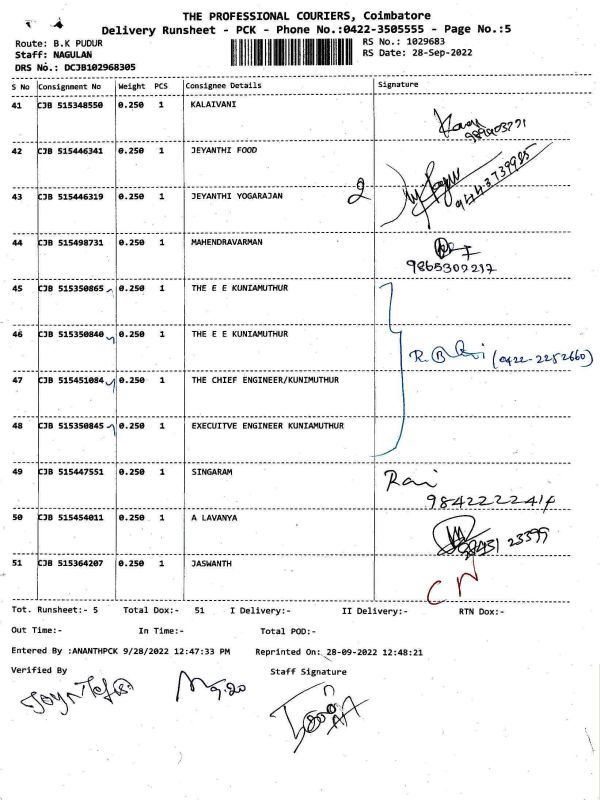 THE PROFESSIONAL COURIERS, Coimbatore
Delivery Runsheet - PCK - Phone No.:0422-3505555 - Page No.:5
Route: B.K PUDUR
RS No.: 1029683
Staff: NAGULAN
RS Date: 28-Sep-2022
DRS No.: DCJB102968305
S No Consignment No Weight PCS Consignee Details Signature
41 CJB 515348550 0.250 1 KALAIVANI
42 CJB 515446341 0.250 1 JEYANTHI FOOD
43 CJB 515446319 0.250 1 JEYANTHI YOGARAJAN 2
44 CJB 515498731 0.250 1 MAHENDRAVARMAN
9865309217
45 CJB 515350865 0.250 1 THE E E KUNIAMUTHUR
46 CJB 515350840 0.250 1 THE E E KUNIAMUTHUR
(0422-2252660)
47 CJB 515451084 0.250 1 THE CHIEF ENGINEER/KUNIMUTHUR
48 CJB 515350845 0.250 1 EXECUITVE ENGINEER KUNIAMUTHUR
49 CJB 515447551 0.250 1 SINGARAM
9842222414
50 CJB 515454011 0.250 1 A LAVANYA
98431 23399
51 CJB 515364207 0.250 1 JASWANTH
CN
Tot. Runsheet:- 5 Total Dox:- 51 I Delivery:- II Delivery:- RTN Dox:-
Out Time:- In Time:- Total POD:-
Entered By :ANANTHPCK 9/28/2022 12:47:33 PM Reprinted On: 28-09-2022 12:48:21
Verified By Staff Signature